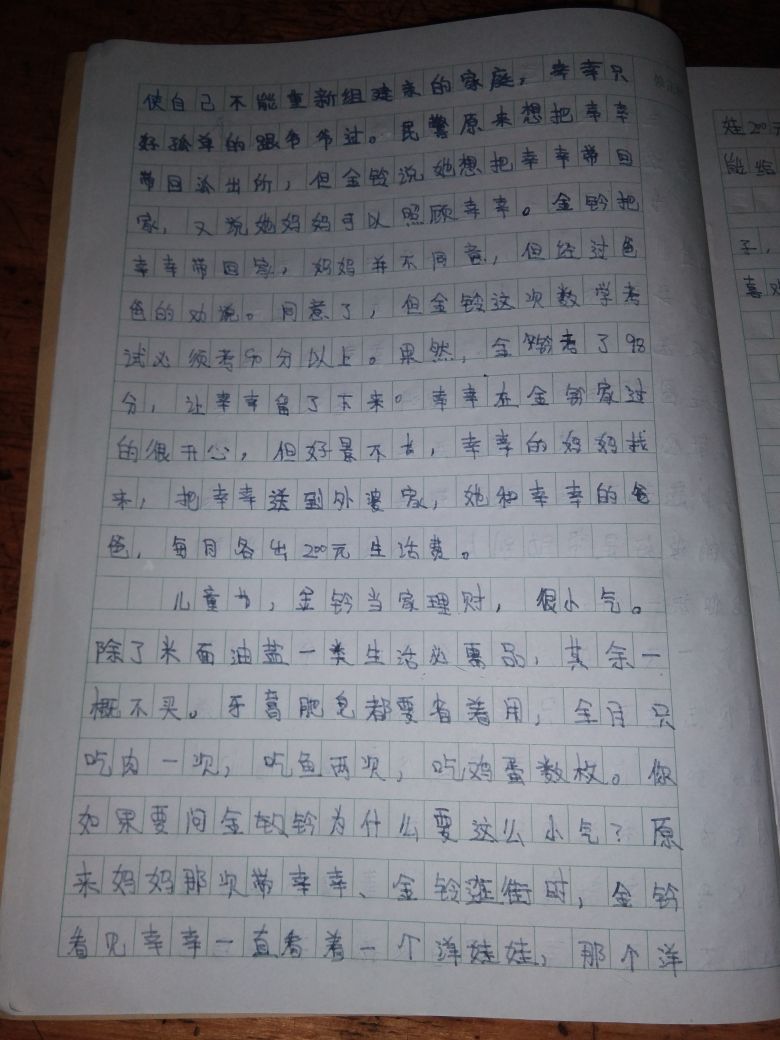 使自己不能重新组建亲的家庭，幸幸只
好孤单的跟爷爷过。民警原来想把幸幸
带回派出所，但金铃说她想把幸幸带回
家，又说她妈妈可以照顾幸幸。金铃把
幸幸带回家，妈妈并不同意，但经过爸
爸的劝说。同意了，但金铃这次数学考
试必须考90分以上。果然，金铃考了98
分，让幸幸留了下来。幸幸在金铃家过
的很开心，但好景不长，幸幸的妈妈找
来，把幸幸送到外婆家，她和幸幸的爸
爸，每月各出200元生活费。
儿童节，金铃当家理财，很小气。
除了米面油盐一类生活必需品，其余一
概不买。牙膏肥皂都要省着用，全月只
吃肉一次，吃鱼两次，吃鸡蛋数枚。你
如果要问金铃为什么要这么小气？原
来妈妈那次带幸幸、金铃逛街时，金铃
看见幸幸一直看着一个洋娃娃，那个洋
娃200元
能给
子，
喜欢